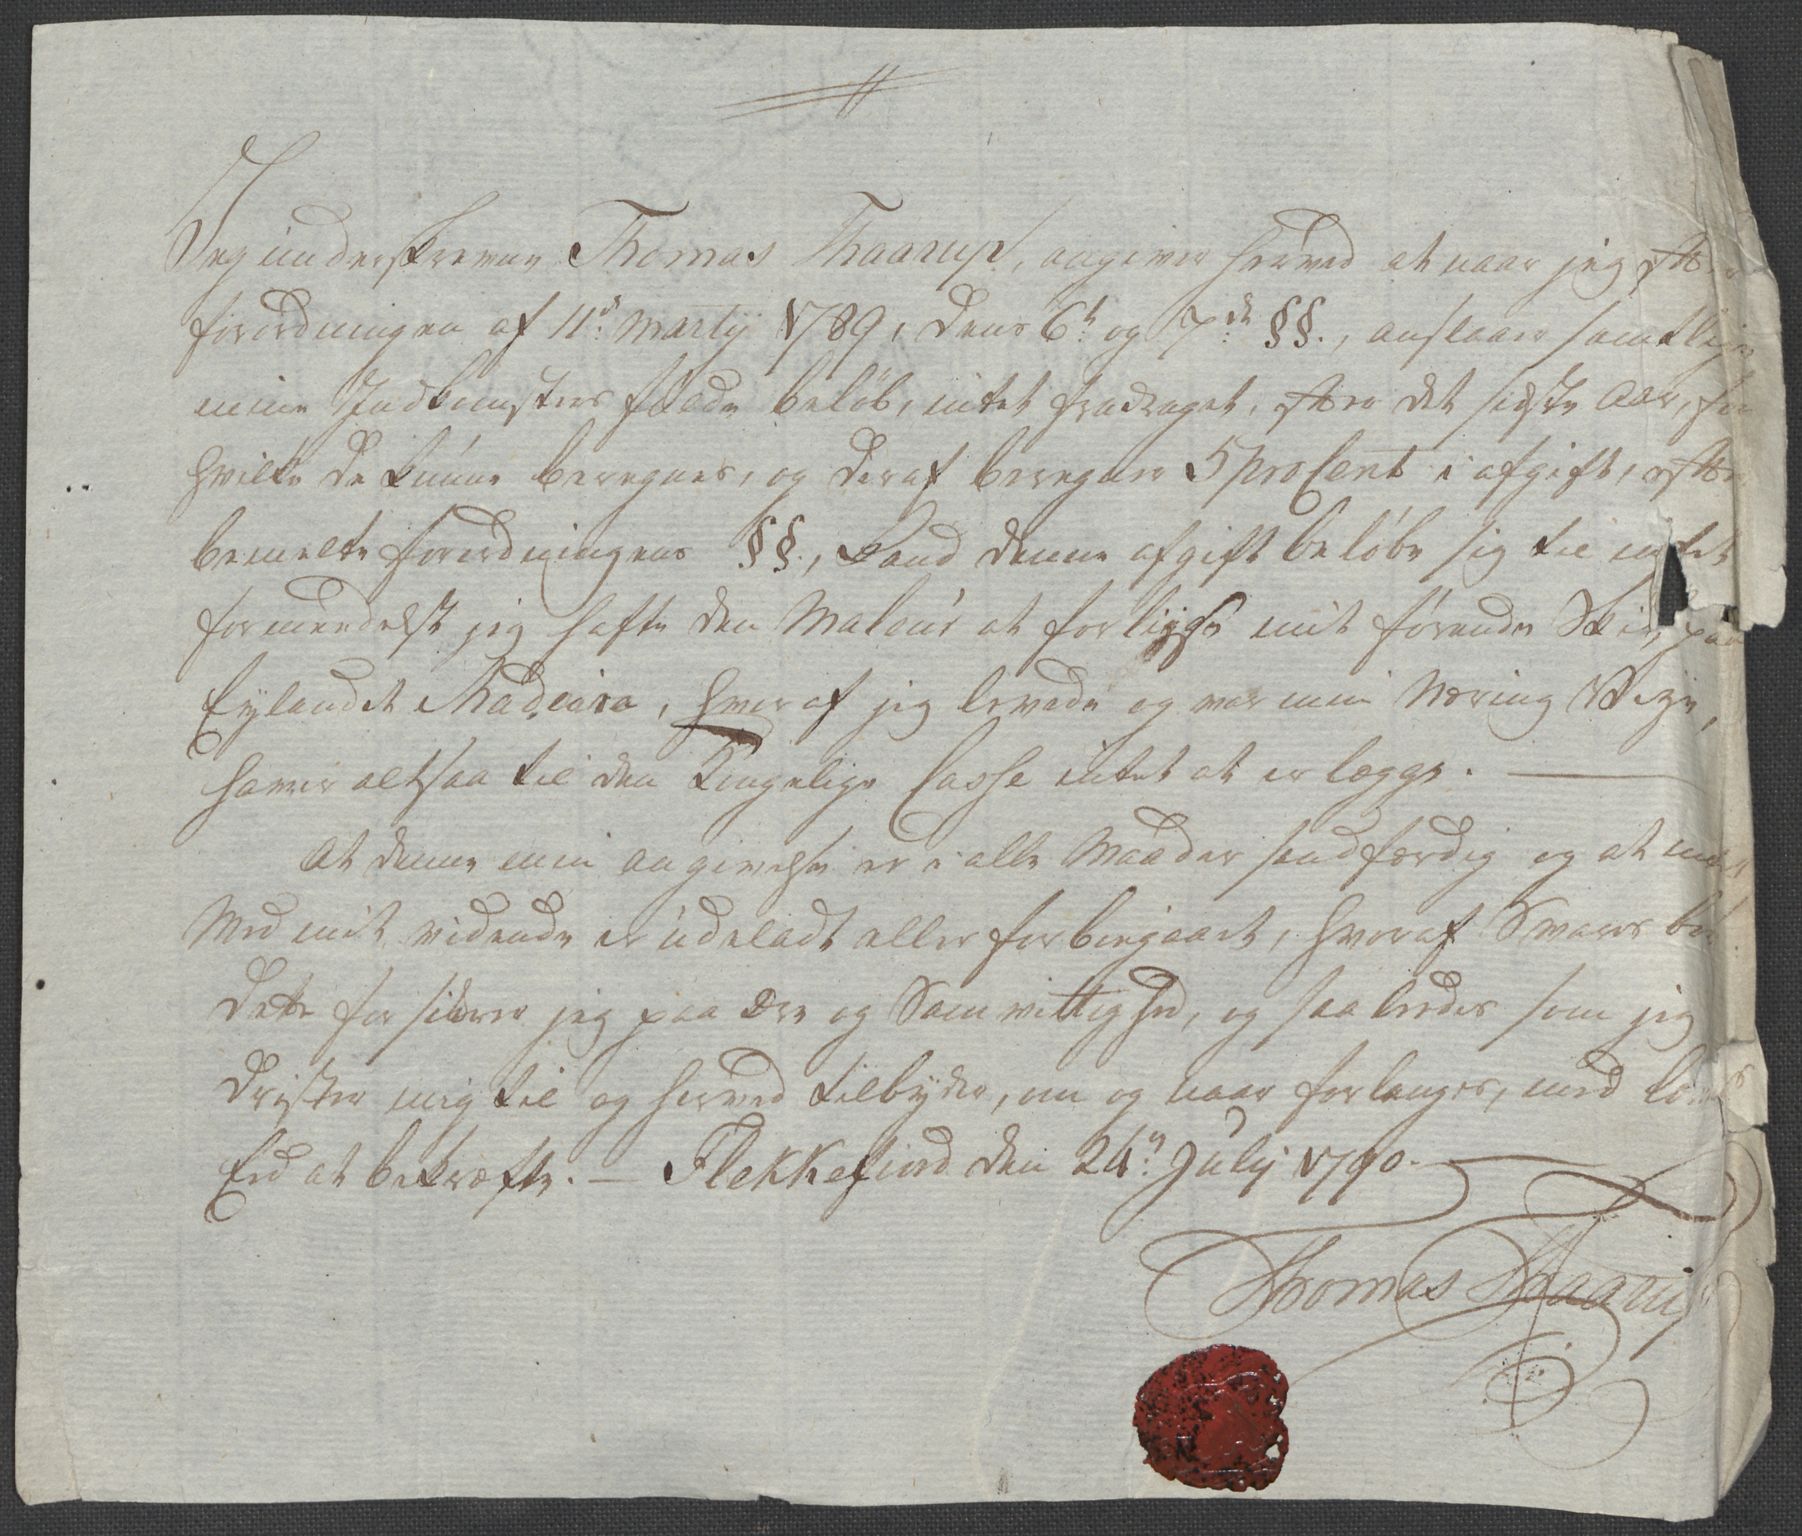 Jeg underskrevne Thomas Thaarup, angiver herved at naar jeg efter
forordningen af 11te Martij 1789, dens 6te og 7de §§., anslaaer samtlige
mine Indkomsters fulde beløb, intet fradraget, efter det sidste Aar, for
hvilke de kunne beregnes, og deraf beregner 5 pro Cent i afgift, efter
bemelte forordningens §§., kand denne afgift beløbe sig til intet
formedelst jeg hafte den Maleur at forliise mit førende Skib paa
Eylandet Madeira, hveraf jeg levede og var min Næring Veye,
haver altsaa til den Kongelige Casse intet at erlægge. —
At denne min angivelse er i alle Maader sandfærdig og at intet
Med mit vidende er udeladt eller forbiegaaet, hvoraf Svares bør
Dette forsikrer jeg paa Ære og Samvittighed, og saaledes som jeg
drister mig til og herved tilbyder, om og naar forlanges, med
Eed at bekræfte. — Flekkefiord den 24n July 1790.
Thomas Thaarup